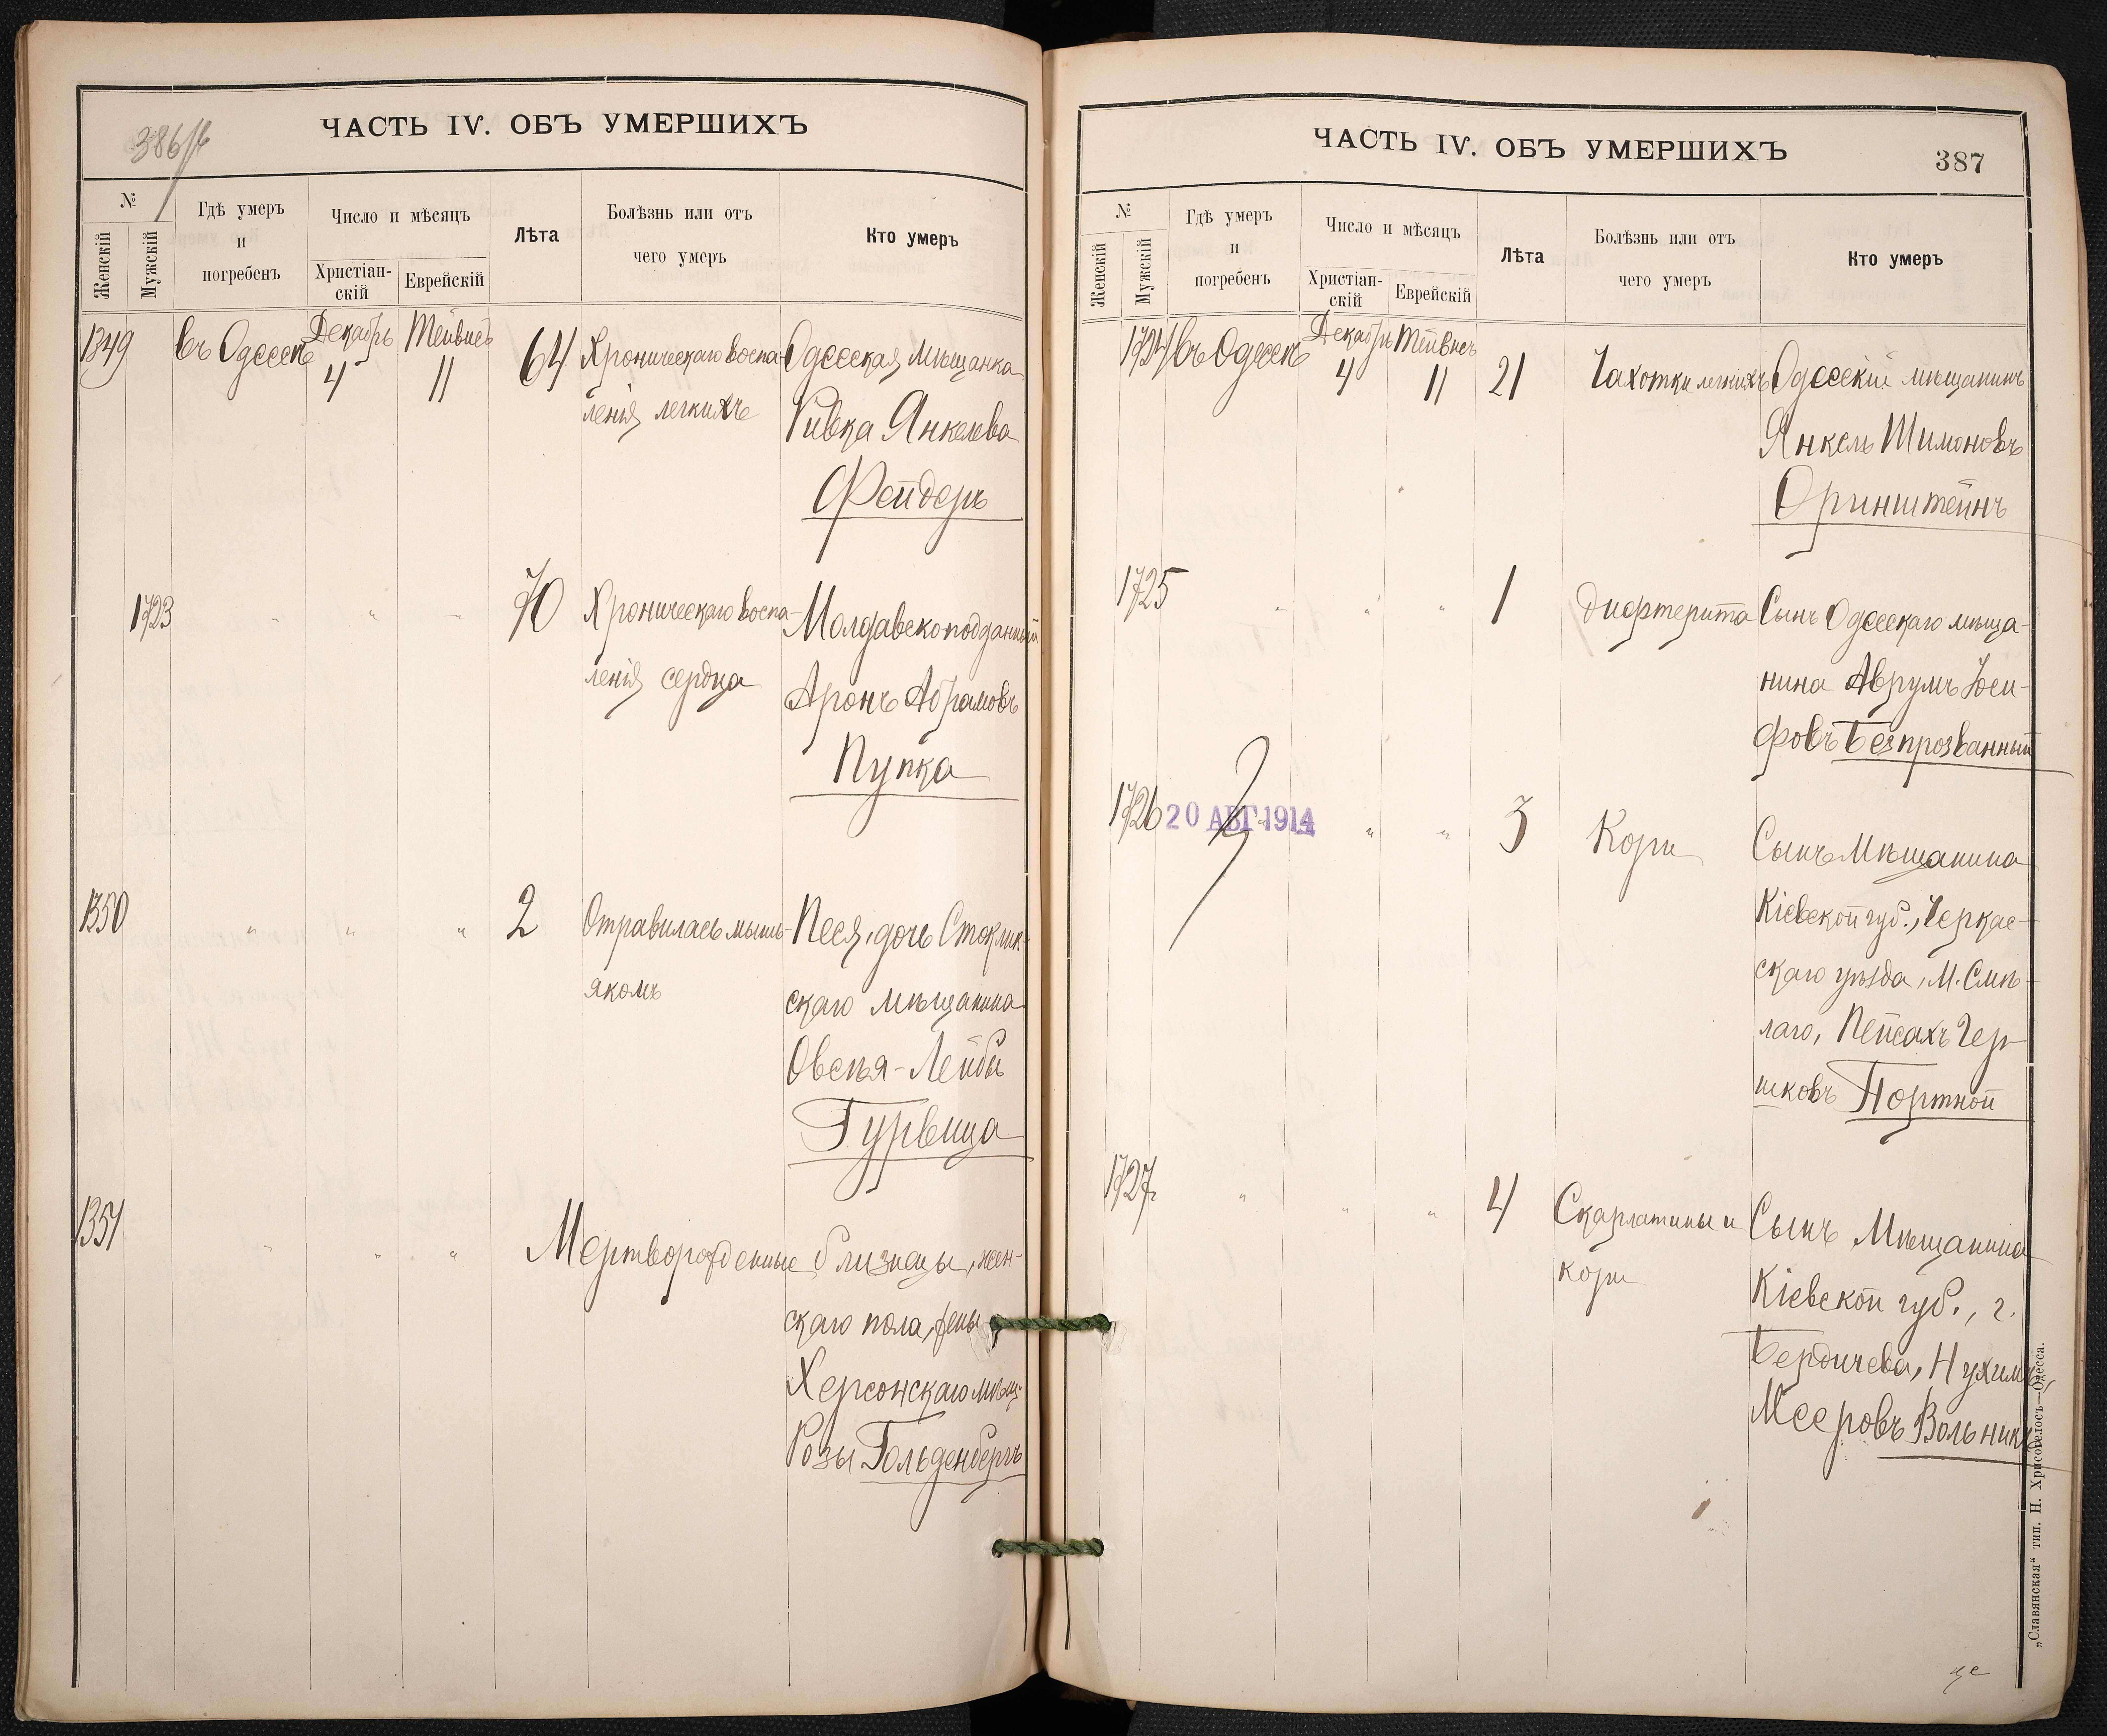 386/б
ЧАСТЬ IV. ОБЪ УМЕРШИХЪ
№
Женскій
Мужскій
Гдѣ умеръ
и
погребенъ
Число и мѣсяцъ
Христіан-
скій
Еврейскій
Лѣта
Болѣзнь или отъ
чего умеръ
Кто умеръ
1349
въ Одессѣ
Декабрь
4
Тейвисъ
11
64
Хроническаго воспа-
ленія легкихъ
Одесская мѣщанка
Ривка Янкелева
Фейдеръ
1723
"
"
70
Хроническаго воспа-
ленія сердца
Молдавскоподданный
Аронъ Абрамовъ
Пупка
1350
"
"
"
2
Отравилась мышь-
якомъ
Песя, дочь Стоклик-
скаго мѣщанина
Овсѣя-Лейбы
Гурвица
1351
"
"
"
Мертворожденные близнецы, жен-
скаго пола, жены
Херсонскаго мѣщ.
Розы Гольденбергъ
ЧАСТЬ IV. ОБЪ УМЕРШИХЪ
387
№
Женскій
Мужскій
Гдѣ умеръ
и
погребенъ
Число и мѣсяцъ
Христіан-
скій
Еврейскій
Лѣта
Болѣзнь или отъ
чего умеръ
Кто умеръ
1724
въ Одессѣ
Декабрь
4
Тейвисъ
11
21
Чахотки легкихъ
Одесскій мѣщанинъ
Янкель Шимоновъ
Оринштейнъ
1725
"
"
"
1
Дифтерита
Сынъ Одесскаго мѣща-
нина Аврумъ Іоси-
фовъ Безпрозванный
1726
20 АВГ 1914
"
"
3
Кори
Сынъ Мѣщанина
Кіевской губ., Черкас-
скаго уѣзда, М. Смѣ-
лаго, Пейсахъ Гер-
шковъ Портной
1727
"
"
"
4
Скарлатины и
кори
Сынъ Мѣщанина
Кіевской губ., г.
Бердичева, Нухимъ,
Мееровъ Вольникъ
„Славянская“ тип. Н. Хрисогелосъ—Одесса.